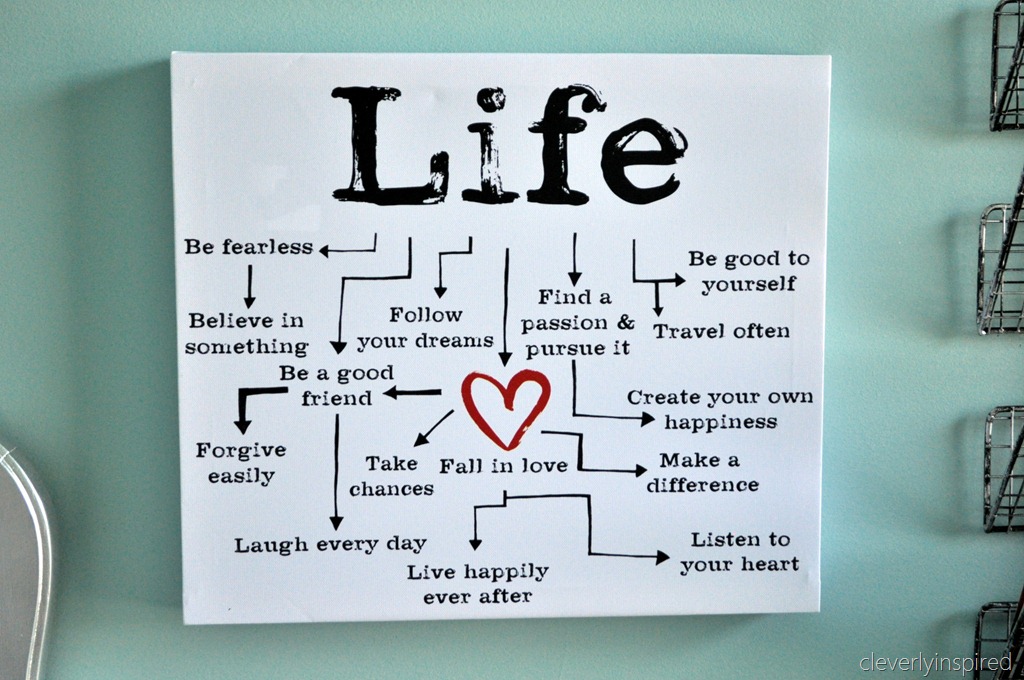 Life
Be fearless
Be good to
yourself
Believe in
something
Follow
your dreams
Find a
passion &
pursue it
Travel often
Be a good
friend
Create your own
happiness
Forgive
easily
Take
chances
Fall in love
Make a
difference
Laugh every day
Live happily
ever after
Listen to
your heart
cleverlyinspired